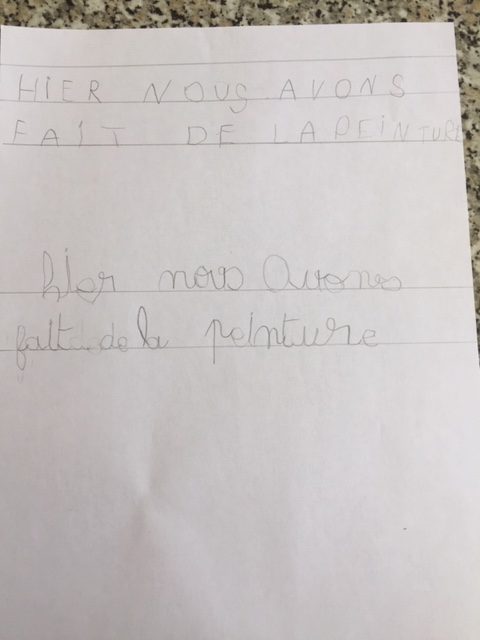 HIER NOUS AVONS
FAIT DE LA PEINTURE
hier nous avons
fait de la peinture